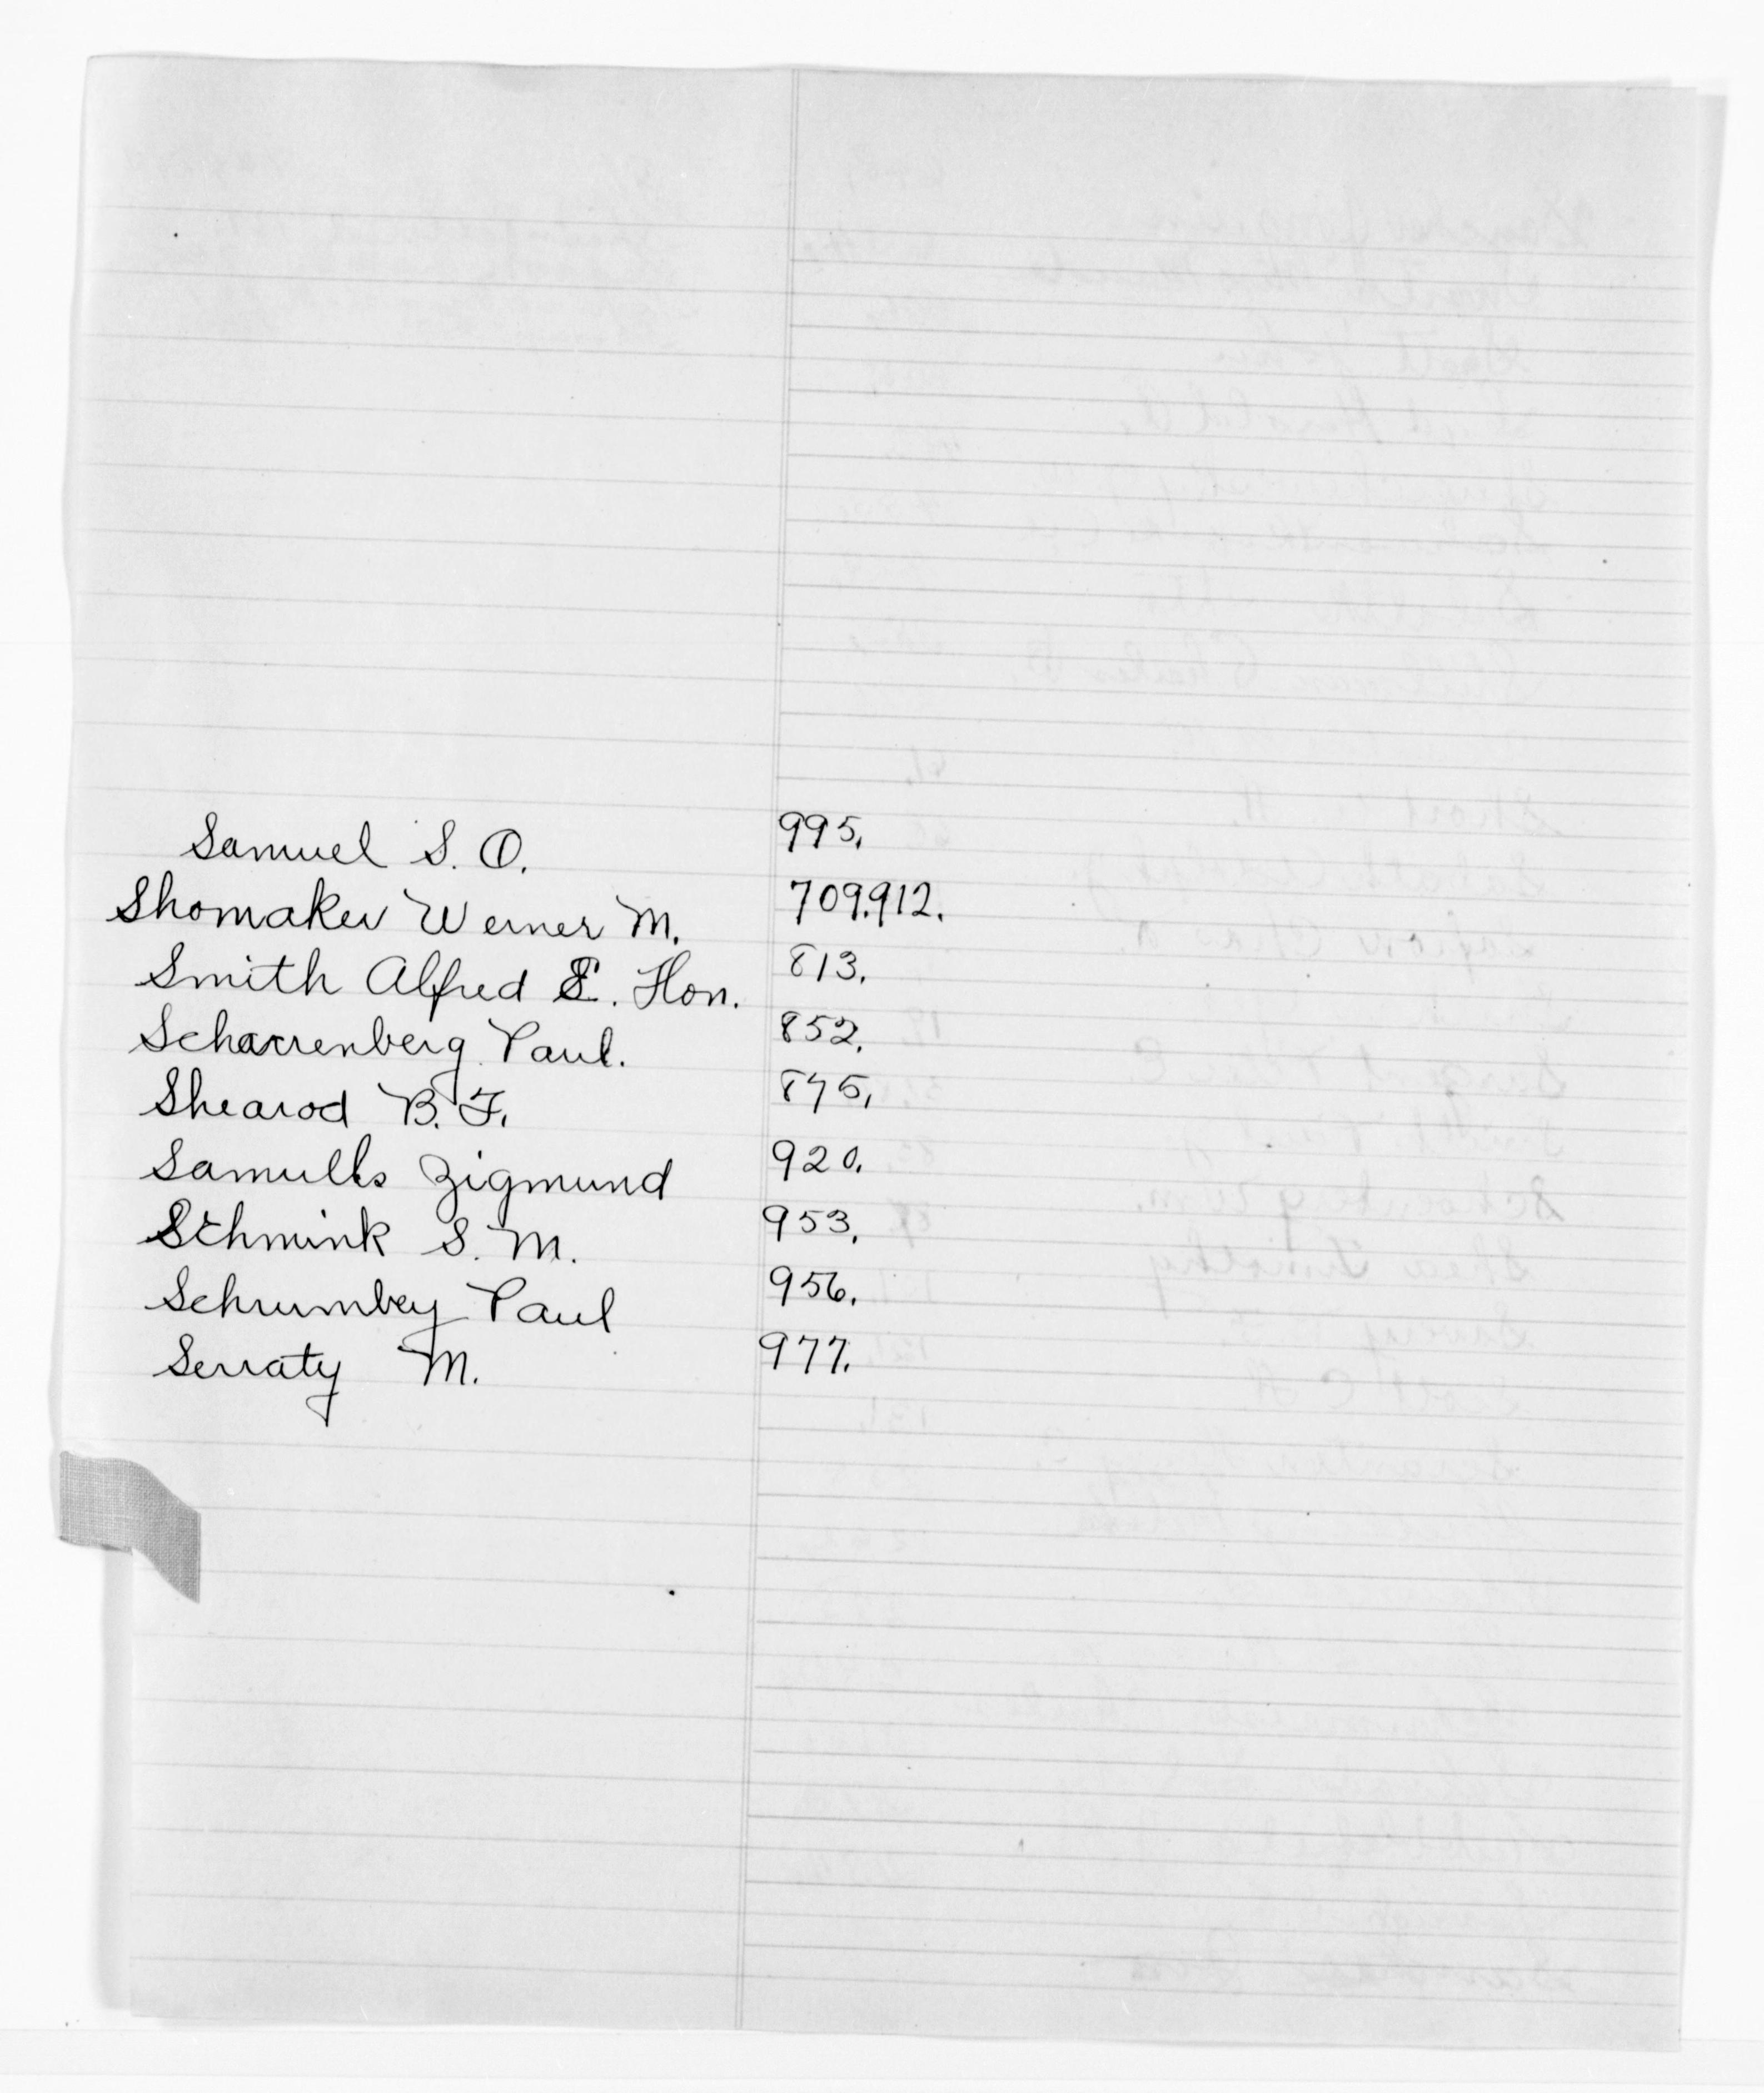 Samuel S. O. 995.
Shomaker Werner M. 709.912.
Smith Alfred E. Hon. 813.
Scharrenberg Paul. 852.
Shearod B. F. 875.
Samulls Zigmund 920.
Schmink S. M. 953.
Schrumbey Paul 956.
Serraty M. 977.